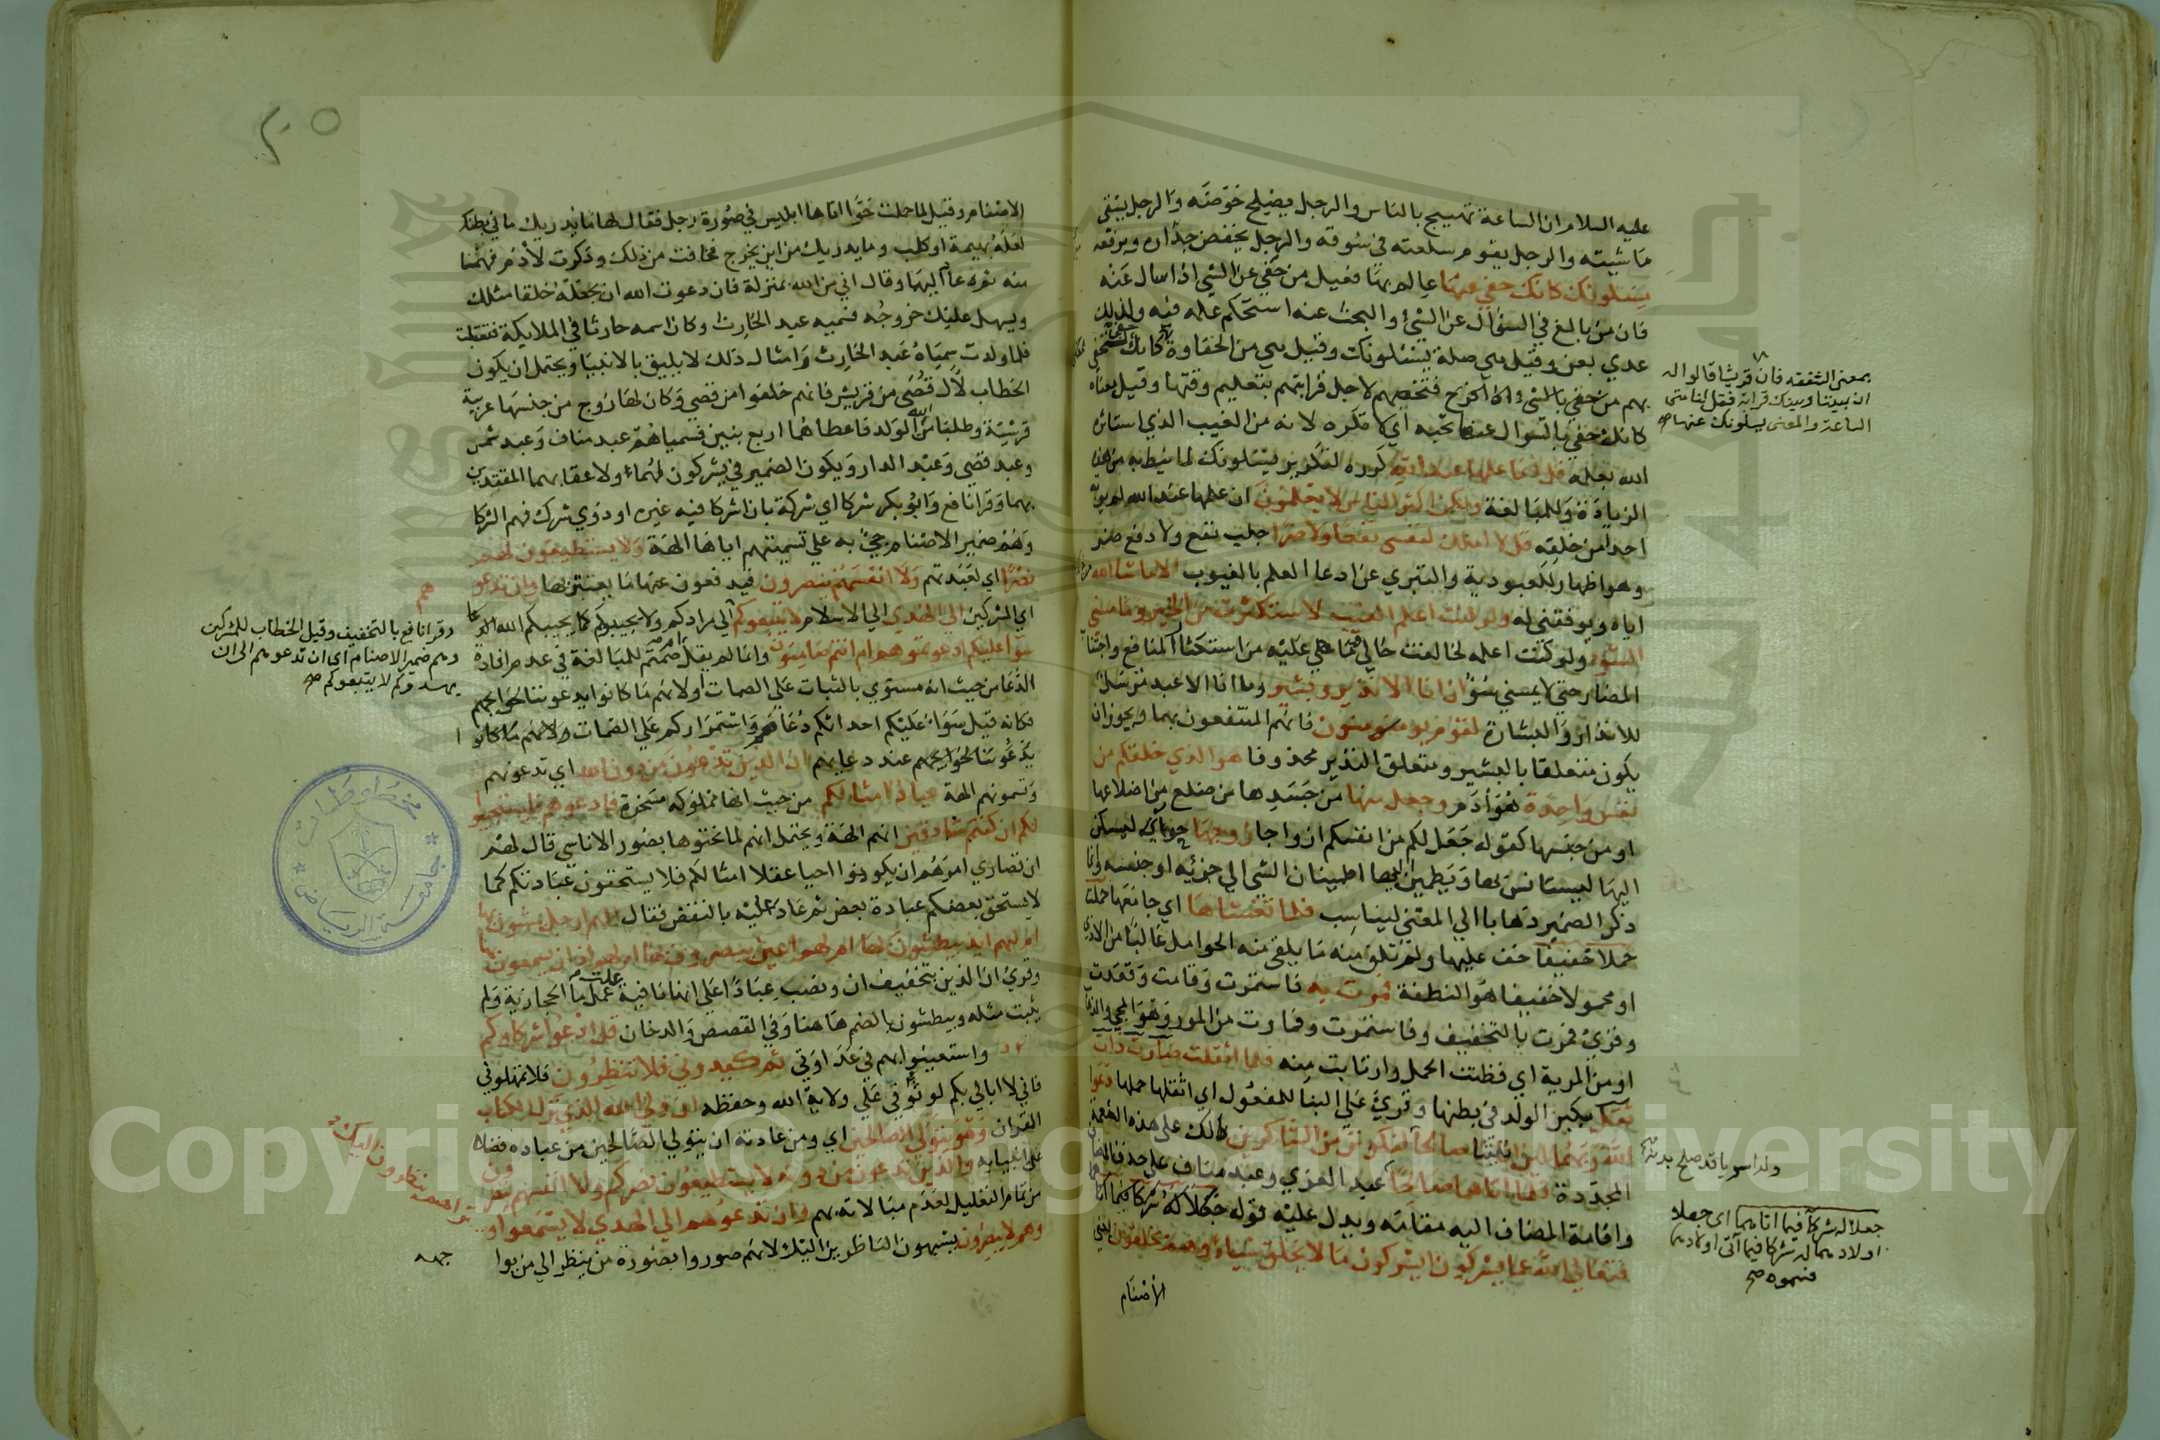 عليه السلام ان الساعة تهيج بالناس والرجل يصلح حوضه والرجل يسقي
ماشيته والرجل يقوم سلعته في سوقه والرجل يخفض ميزانه ويرفعه
يسئلونك كانك حفي عنها عالم بها فعيل من حفي عن الشي اذا سال عنه
فان من بالغ في السؤال عن الشئ والبحث عنه استحكم علمه فيه ولذلك
عدي بعن وقيل هي صلة يسئلونك وقيل هي من الحفاوة
بهم من حفي بالشئ اذا فرح فتخصهم لاجل قرابتهم بتعليم وقتها وقيل معناه
كانك حفي بالسوال عنها تحبه اي تكره لانه من الغيب الذي استاثر
الله بعلمه قل انما علمها عند الله كرره لتكرير يسئلونك لما نيط به من هذه
الزيادة وللمبالغة ولكن اكثر الناس لا يعلمون ان علمها عند الله لم يؤته
احدا من خلقه قل لا املك لنفسي نفعا ولا ضرا جلب نفع ولا دفع ضر
وهو اظهار للعبودية والتبري عن ادعا العلم بالغيوب الا ما شا الله
اياه ويوفقني له ولو كنت اعلم الغيب لاستكثرت من الخير وما مسني
السوء ولو كنت اعلمه لخالفت حالي ما هي عليه من استكثار المنافع واجتناب
المضار حتى لا يمسني سوء ان انا الا نذير وبشير وما انا الا عبد مرسل
للانذار والبشارة لقوم يؤمنون فانهم المنتفعون بهما ويجوز ان
يكون متعلقا بالبشير ومتعلق النذير محذوفا هو الذي خلقكم من
نفس واحدة هو ادم وجعل منها من جسدها من ضلع من اضلاعها
او من جنسها كقوله جعل لكم من انفسكم ازواجا زوجها حوا ليسكن
اليها ليستانس بها ويطمئن اليها اطمينان الشي الي جزئه او جنسه وانما
ذكر الضمير ذهابا الي المعنى ليناسب فلما تغشاها اي جامعها حملت
حملا خفيفا خف عليها ولم تلق منه ما يلقى منه الحوامل غالبا من الاذي
او محمولا خفيفا هو النطفة فمرت به فاستمرت وقامت وقعدت
وقرئ فمرت بالتخفيف وفاستمرت وفمارت من المور وهو المجي والذهاب
او من المرية اي فظنت الحمل وارتابت منه فلما اثقلت صارت ذات
ثقل بكبر الولد في بطنها وقرئ على البنا للمفعول اي اثقلها حملها دعوا
الله ربهما لئن اتيتنا صالحا لنكونن من الشاكرين لك على هذه النعمة
المجددة فلما اتاهما صالحا
واقامة المضاف اليه مقامه ويدل عليه قوله جعلا له شركا فيما اتا
فتعالي الله عما يشركون ايشركون ما لا يخلق شيئا وهم يخلقون يعني
الاصنام
بمعنى الشفقه فان قريشا قالوا له
ان بيننا وبينك قرابة فقل لنا متى
الساعة والمعنى يسلونك عنها
ولدا سويا قد صلح بدنه
جعلا له شركا فيما اتاهما اي جعلا
اولادهما له شركا فيما اتى اولادهما
فسموه صح
٢٠٥
الاصنام وقيل لما حملت حوا اتاها ابليس في صورة رجل فقال لها ما يدريك ما في بطنك
لعله بهيمة او كلب وما يدريك من اين يخرج فخافت من ذلك وذكرت لادم فهمنا
منه ثم عاد اليها وقال اني من الله بمنزلة فان دعوت الله ان يجعله خلقا مثلك
ويسهل عليك خروجه فسميه عبد الحارث وكان اسمه حارثا في الملايكة فتقبلت
فلما ولدت سمياه عبد الحارث وامثال ذلك لا يليق بالانبيا ويحتمل ان يكون
الخطاب لال قصي من قريش فانهم خلقوا من قصي وكان له زوج من جنسها عربية
قرشية وطلبا من الله الولد فاعطاهما اربع بنين فسمياهم عبد مناف وعبد شمس
وعبد قصي وعبد الدار ويكون الضمير في يشركون لهما ولاعقابهما المقتدين
بهما وقرا نافع وابو بكر شركا اي شركة بان اشركا فيه غيره او ذوي شرك وهم الشركا
وهم ضمير الاصنام جئ به علي تسميتهم اياها الهة ولا يستطيعون لهم
نصرا اي لعبدتهم ولا انفسهم ينصرون فيدفعون عنها ما يعتريها وان تدعوهم
اي المشركين الي الهدي الي الاسلام لا يتبعوكم الي مرادكم ولا يجيبوكم كما يجيبكم الله
سوا عليكم ادعوتموهم ام انتم صامتون وانما لم يقل ام صمتم للمبالغة في عدم افادة
الدعا من حيث انه مستوي بالثبات على الصمات او لانهم ما كانوا يدعونها لحوايجهم
فكانه قيل سواء عليكم احداثكم دعاهم واستمراركم علي الصمات
يدعونها لحوايجهم عند دعايهم ان الذين تدعون من دون الله اي تدعونهم
وتسمونهم الهة عباد امثالكم من حيث انها مملوكه مسخرة فادعوهم فليستجيبوا
لكم ان كنتم صادقين انهم الهة ويحتمل انهم لما نحتوها بصور الاناسي قال لهم
ان قصاري امرهم ان يكونوا احيا عقلا امثالكم فلا يستحقون عبادتكم كما
لا يستحق بعضكم عبادة بعض ثم عاد عليه بالنقض فقال الهم ارجل يمشون بها
ام لهم ايد يبطشون بها ام لهم اعين يبصرون بها ام لهم اذان يسمعون بها
وقرئ ان الذين بتخفيف ان ونصب عبادا على انها نافية عملت عمل ما الحجازية ولم
يثبت مثله ويبطشون بالضم هاهنا وفي القصص والدخان قل ادعوا شركاوكم
واستعينوا بهم في عداوتي ثم كيدوني فلا تنظرون فلا تمهلوني
فاني لا ابالي بكم لوثوقي علي ولاية الله وحفظه ان وليي الله الذي نزل الكتاب
القران وهو يتولي الصالحين اي ومن عادته ان يتولي الصالحين من عباده فضلا
على انبيايه والذين تدعون من دونه لا يستطيعون نصركم ولا انفسهم ينصرون
من تمام التعليل لعدم مبالاته بهم وان تدعوهم الي الهدي لا يسمعوا و
وهم لا يبصرون يشبهون الناظرين اليك لانهم صوروا بصورة من ينظر الي من يوا
جهه
وقرا نافع بالتخفيف وقيل الخطاب للمشركين
وهم ضمير الاصنام اي ان تدعوهم الى ان
يهدوكم لا يتبعوكم صح
تراهم ينظرون اليك
جامعة الرياض
مخطوطات
Copyright © King Saud University